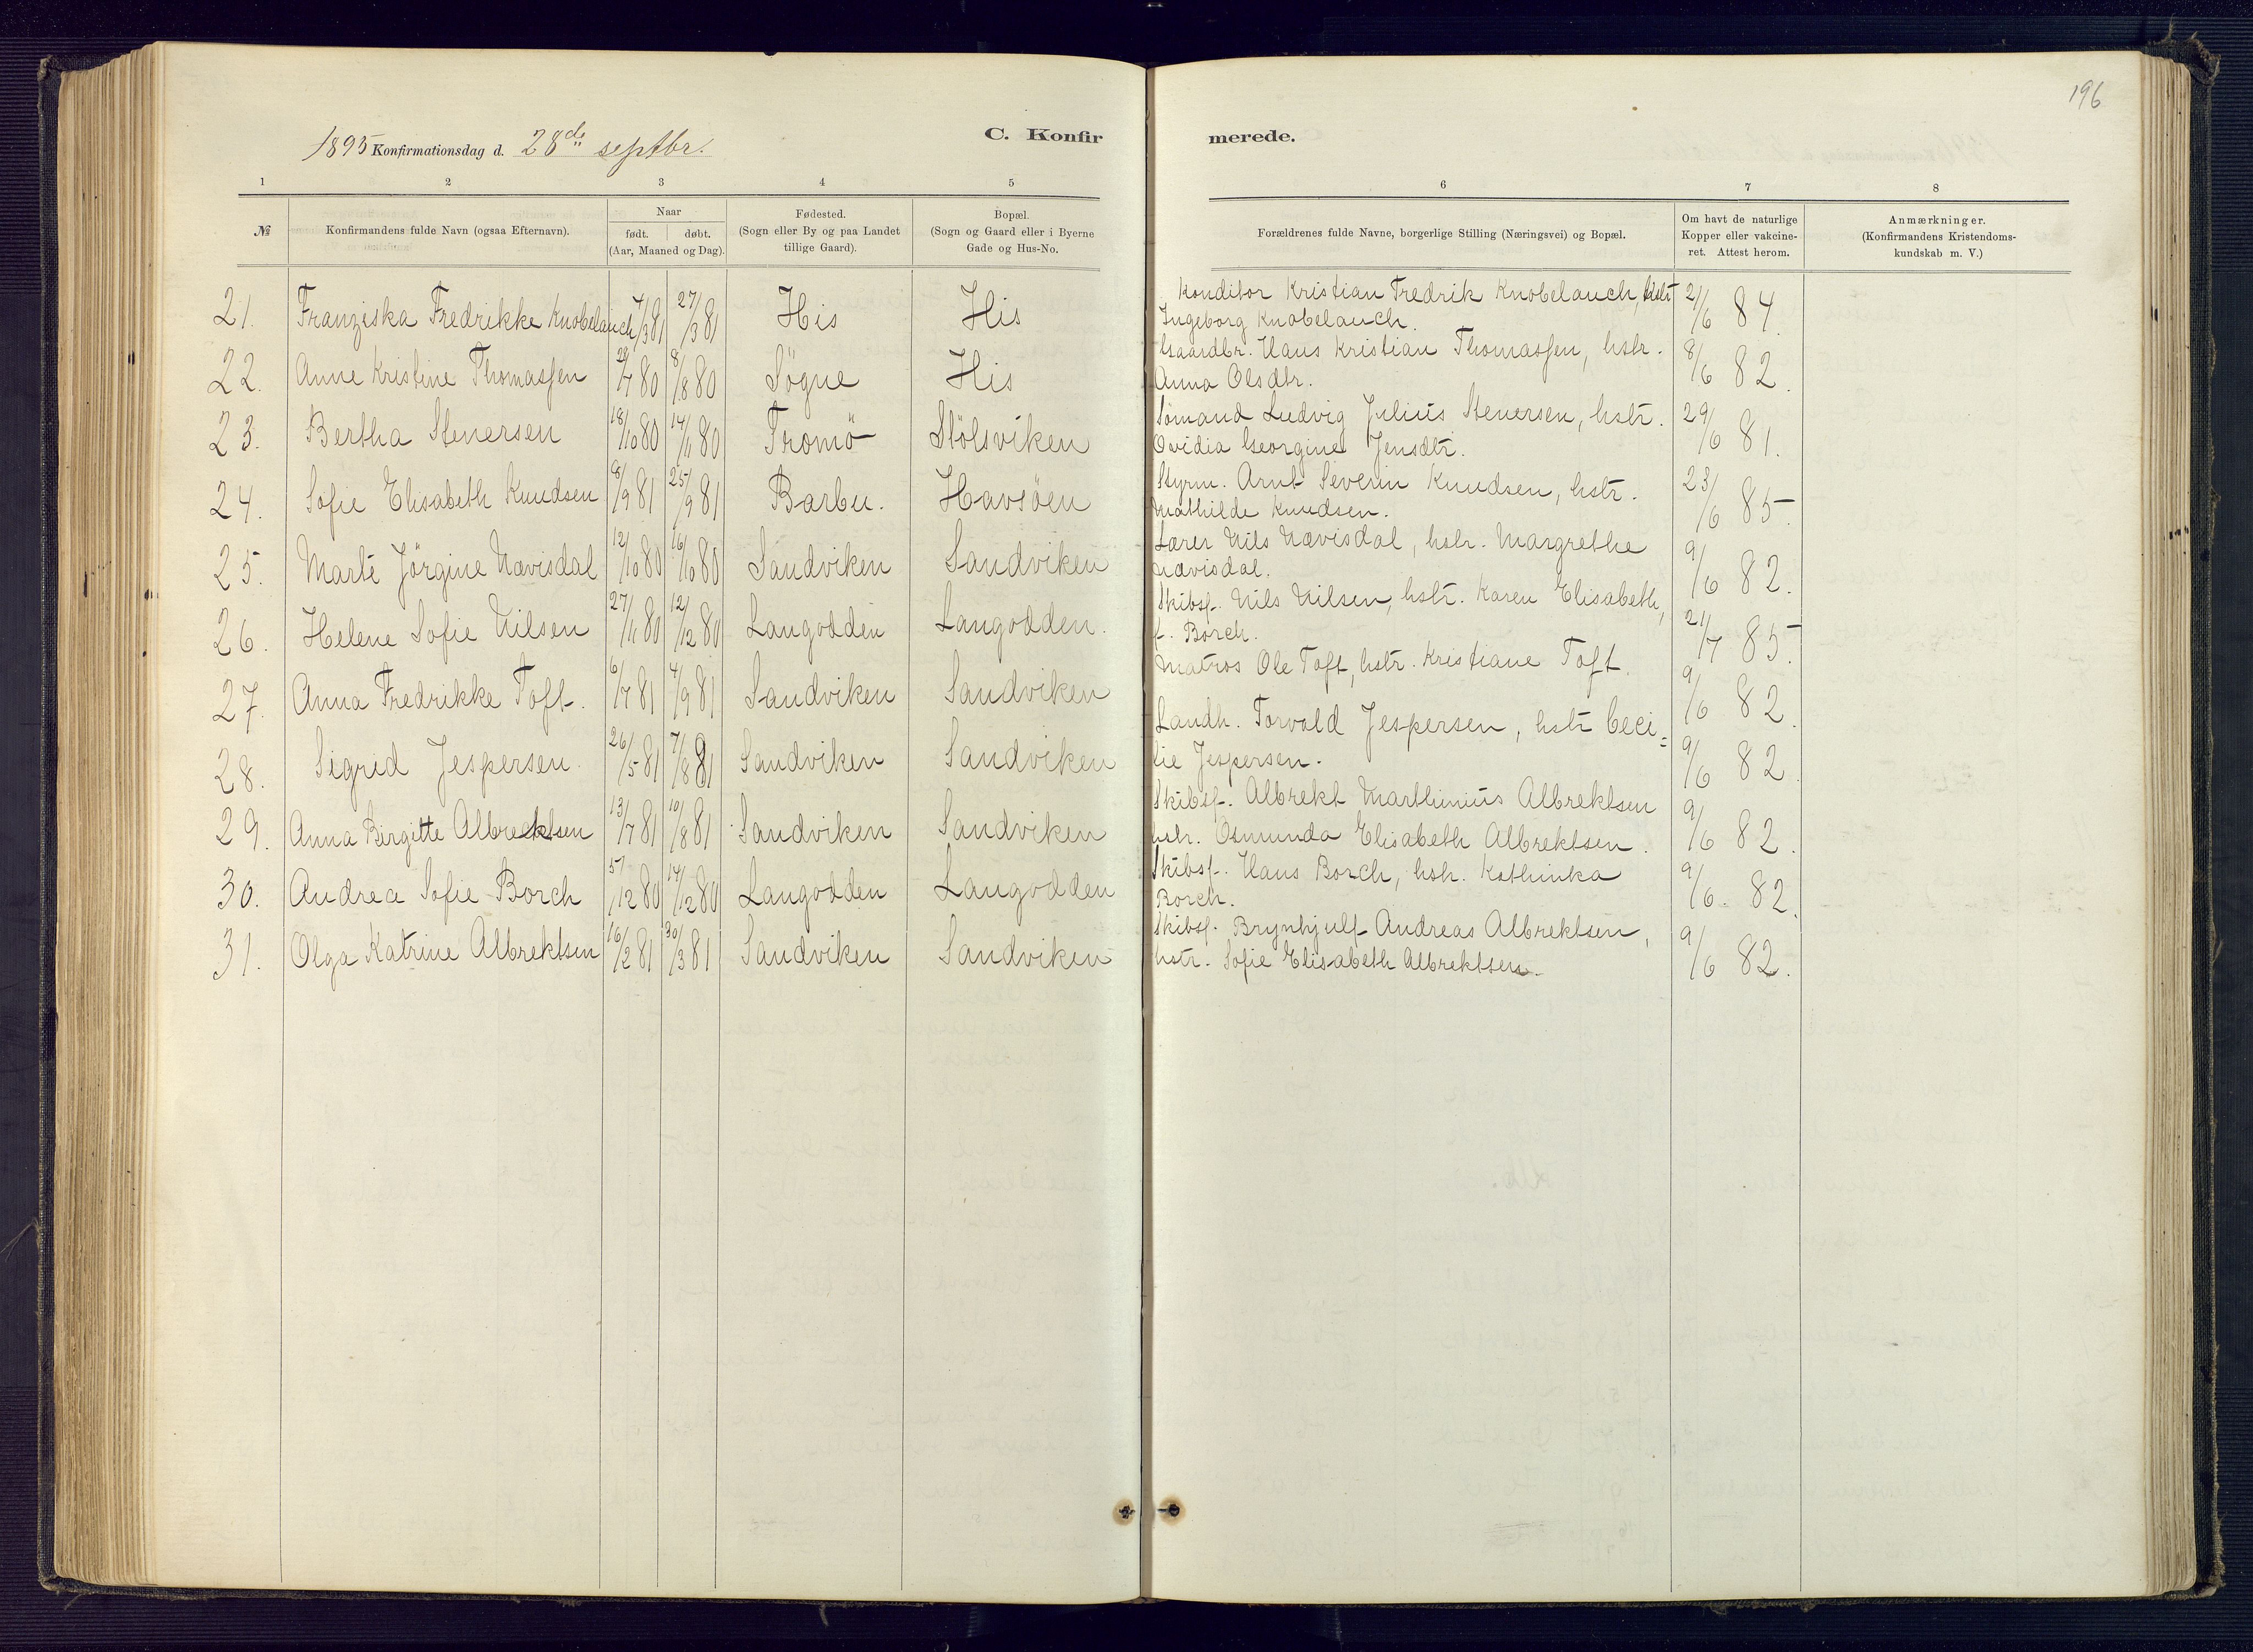 196
1895 Konfirmationsdag d. 28de septbr.
C. Konfirmerede.
1 2 3 4 5 6 7 8
№ | Konfirmandens fulde Navn (ogsaa Efternavn). | Naar født. døbt. (Aar, Maaned og Dag). | Fødested. (Sogn eller By og paa Landet tillige Gaard). | Bopæl. (Sogn og Gaard eller i Byerne Gade og Hus-No. | Forældrenes fulde Navne, borgerlige Stilling (Næringsvei) og Bopæl. | Om havt de naturlige Kopper eller vakcineret. Attest herom. | Anmærkninger. (Konfirmandens Kristendomskundskab m. V.)
21. Franziska Fredrikke Knobelauch 4/3 81 27/3 81 His His Konditor Kristian Fredrik Knobelauch, hstr 2/6 84.
Ingeborg Knobelauch.
22. Anne Kristine Thomassen 29/7 80 8/8 80 Sögne His Gaardbr. Hans Kristian Thomassen, hstr. 8/6 82.
Anna Olsdtr.
23. Bertha Stenersen 18/10 80 14/11 80 Tromö Stölsviken Sömand Ludvig Julius Stenersen, hstr. 29/6 81.
Ovidia Georgine Jensdtr.
24. Sofie Elisabeth Knudsen 8/9 81 25/9 81 Barbu. Havsöen Styrm. Arnt Severin Knudsen, hstr. 23/6 85.
Mathilde Knudsen.
25. Marte Jörgine Nævisdal 12/10 80 16/10 80 Sandviken Sandviken Lærer Nils Nævisdal, hstr. Margrethe 9/6 82.
Nævisdal.
26. Helene Sofie Nilsen 27/11 80 12/12 80 Langodden Langodden. Skibsf. Nils Nilsen, hstr. Karen Elisabeth, 21/7 85.
f. Borch.
27. Anna Fredrikke Toft. 6/7 81 4/9 81 Sandviken Sandviken Matros Ole Toft, hstr. Kristiane Toft. 9/6 82.
28. Sigrid Jespersen. 26/5 81 7/8 81 Sandviken Sandviken Landh. Torvald Jespersen, hstr Ceci= 9/6 82.
lie Jespersen.
29. Anna Birgitte Albrektsen 13/7 81 10/8 81 Sandviken Sandviken Skibsf. Albrekt Marthinius Albrektsen 9/6 82.
hstr. Osmunda Elisabeth Albrektsen.
30. Andrea Sofie Borch 5/12 80 14/12 80 Langodden Langodden Skibsf. Hans Borch, hstr. Kathinka 9/6. 82.
Borch.
31. Olga Katrine Albrektsen 16/2 81 30/3 81 Sandviken Sandviken Skibsf. Brynhjulf Andreas Albrektsen, 9/6 82.
hstr. Sofie Elisabeth Albrektsen.